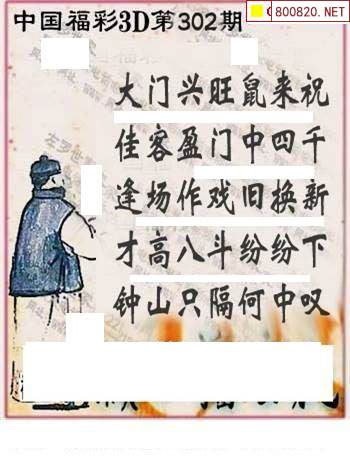 800820.NET
中国福彩3D第302期
大门兴旺鼠来祝
佳客盈门中四千
逢场作戏旧换新
才高八斗纷纷下
钟山只隔何中叹